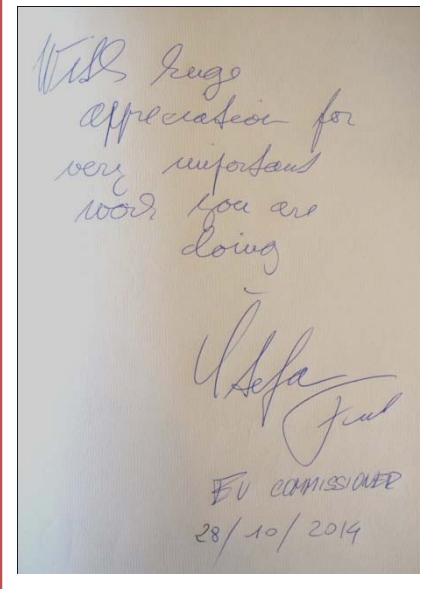 With huge
appreciation for
very important
work you are
doing
Štefan
Füle
EU COMMISSIONER
28/10/2014